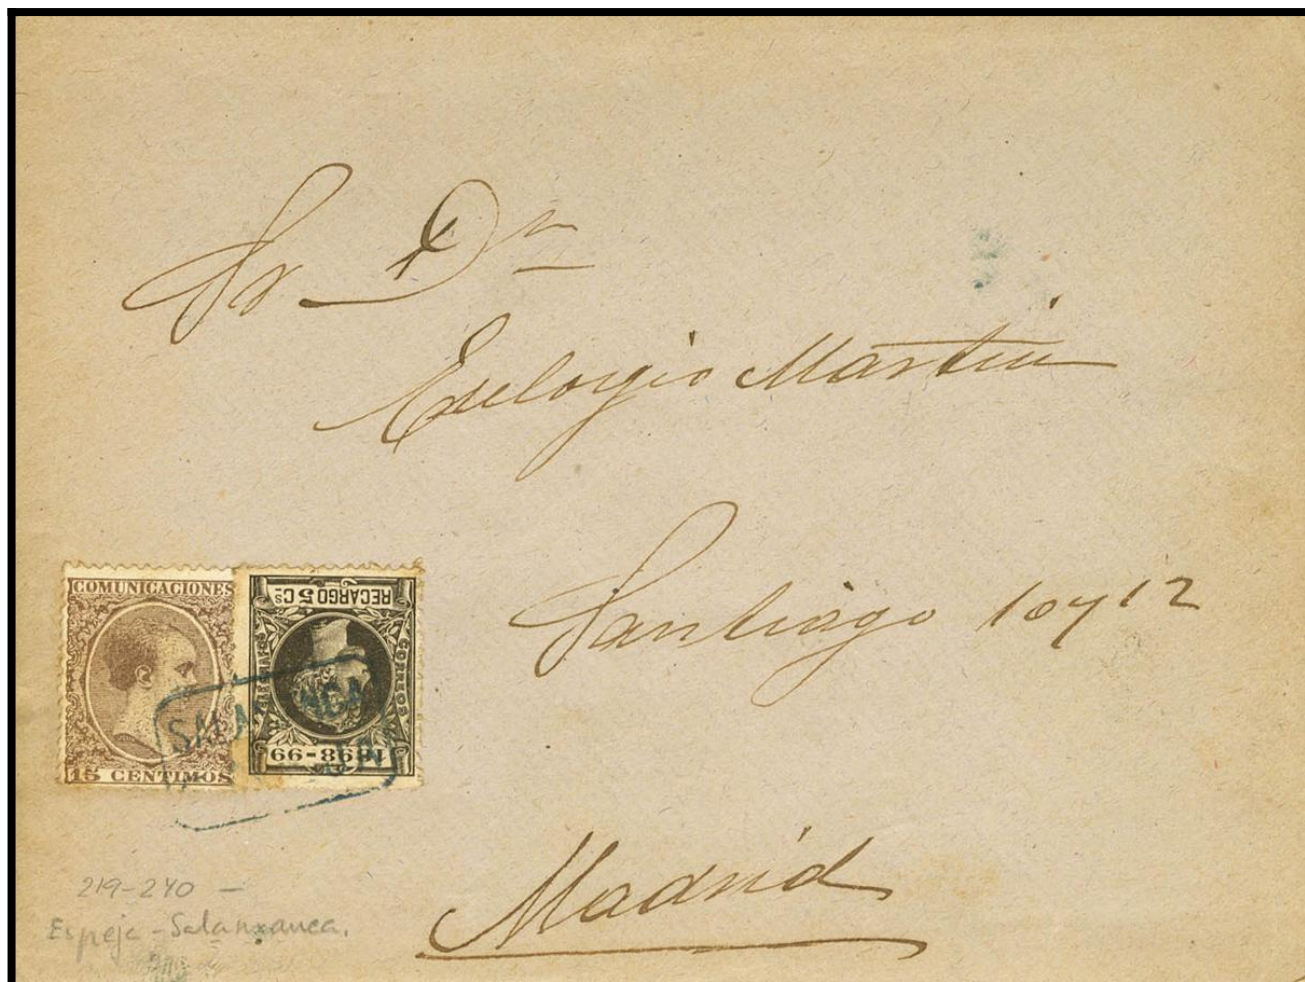 Sr Dn
Eulogio Martin
Santiago 10 y 12
Madrid
COMUNICACIONES
15 CENTIMOS
RECARGO 5 Cs
CORREOS
1898-99
SALAMANCA
219-240 -
Espeja - Salamanca.